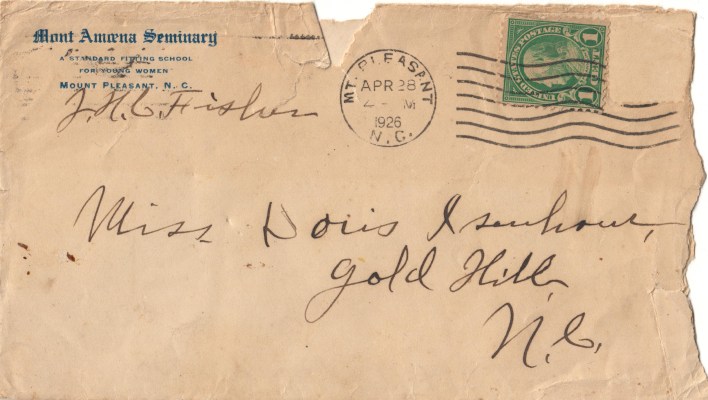 Mont Amœna Seminary
A STANDARD FITTING SCHOOL
FOR YOUNG WOMEN
MOUNT PLEASANT, N. C.
J.H.C. Fisher
MT. PLEASANT
APR 28
4 - M
1926
N.C.
UNITED STATES POSTAGE
1 CENT 1
Miss Doris Isenhour,
Gold Hill
N.C.